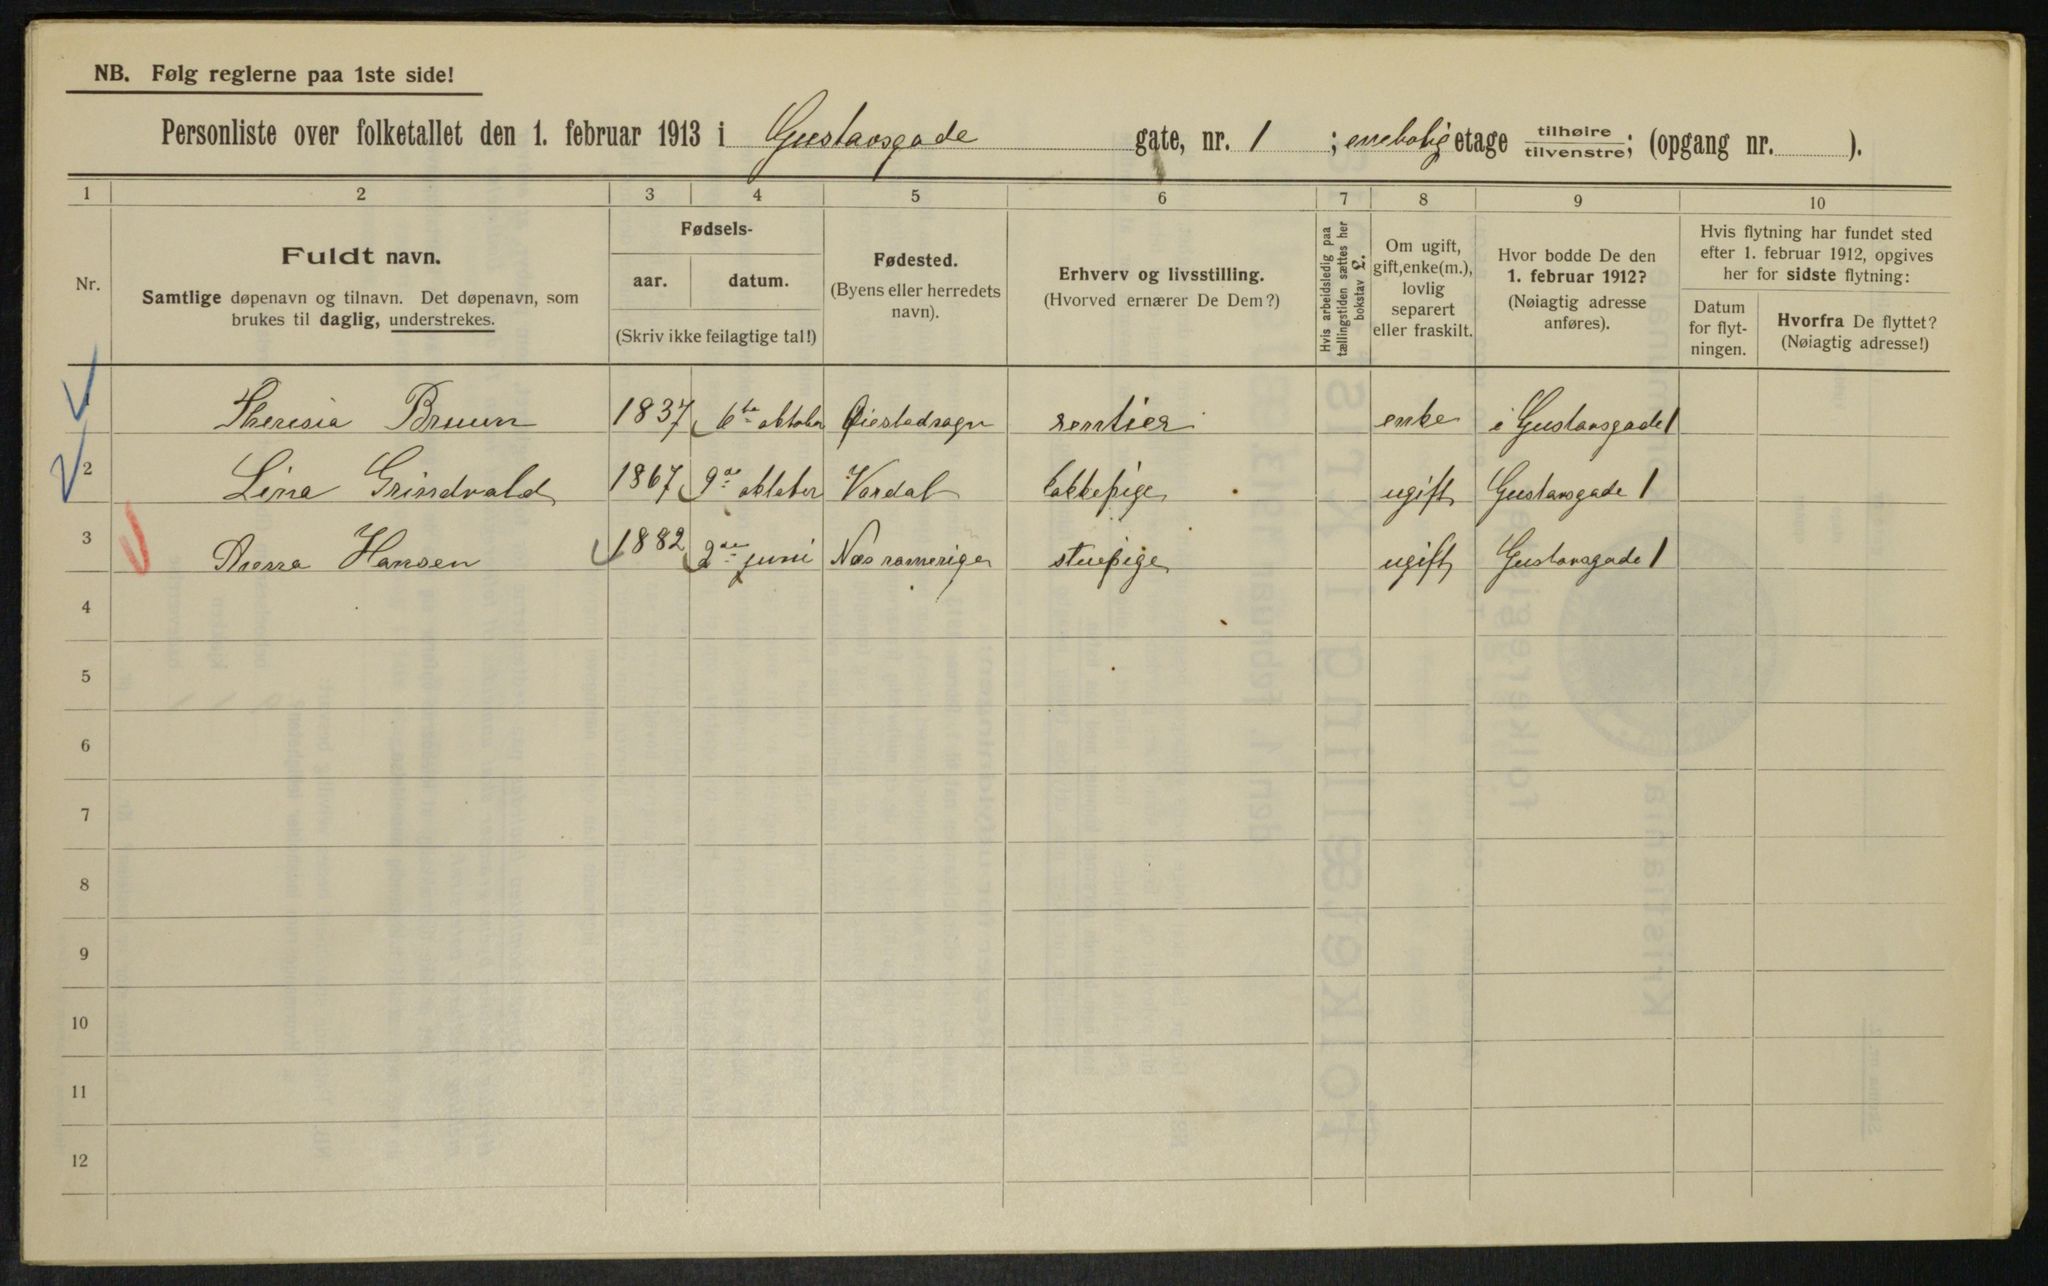 NB. Følg reglerne paa 1ste side!
Personliste over folketallet den 1. februar 1913 i Gustavsgade gate, nr. 1 ; enebolig etage tilhøire/tilvenstre; (opgang nr. ).
1 2 3 4 5 6 7 8 9 10
Nr.
Fuldt navn.
Samtlige døpenavn og tilnavn. Det døpenavn, som
brukes til daglig, understrekes.
Fødsels-
aar. datum.
(Skriv ikke feilagtige tal!)
Fødested.
(Byens eller herredets
navn).
Erhverv og livsstilling.
(Hvorved ernærer De Dem?)
Hvis arbeidsledig paa
tællingstiden sættes her
bokstav L.
Om ugift,
gift, enke(m.),
lovlig
separert
eller fraskilt.
Hvor bodde De den
1. februar 1912?
(Nøiagtig adresse
anføres).
Hvis flytning har fundet sted
efter 1. februar 1912, opgives
her for sidste flytning:
Datum
for flyt-
ningen.
Hvorfra De flyttet?
(Nøiagtig adresse!)
1 Theresia Bruun 1837 6te oktober Øiestadsogn rentier enke i Gustavsgade 1
2 Lina Grindvald 1867 9de oktober Vardal kokkepige ugift Gustavsgade 1
3 Anna Hansen 1882 2den juni Næs romerige stuepige ugift Gustavsgade 1
4
5
6
7
8
9
10
11
12